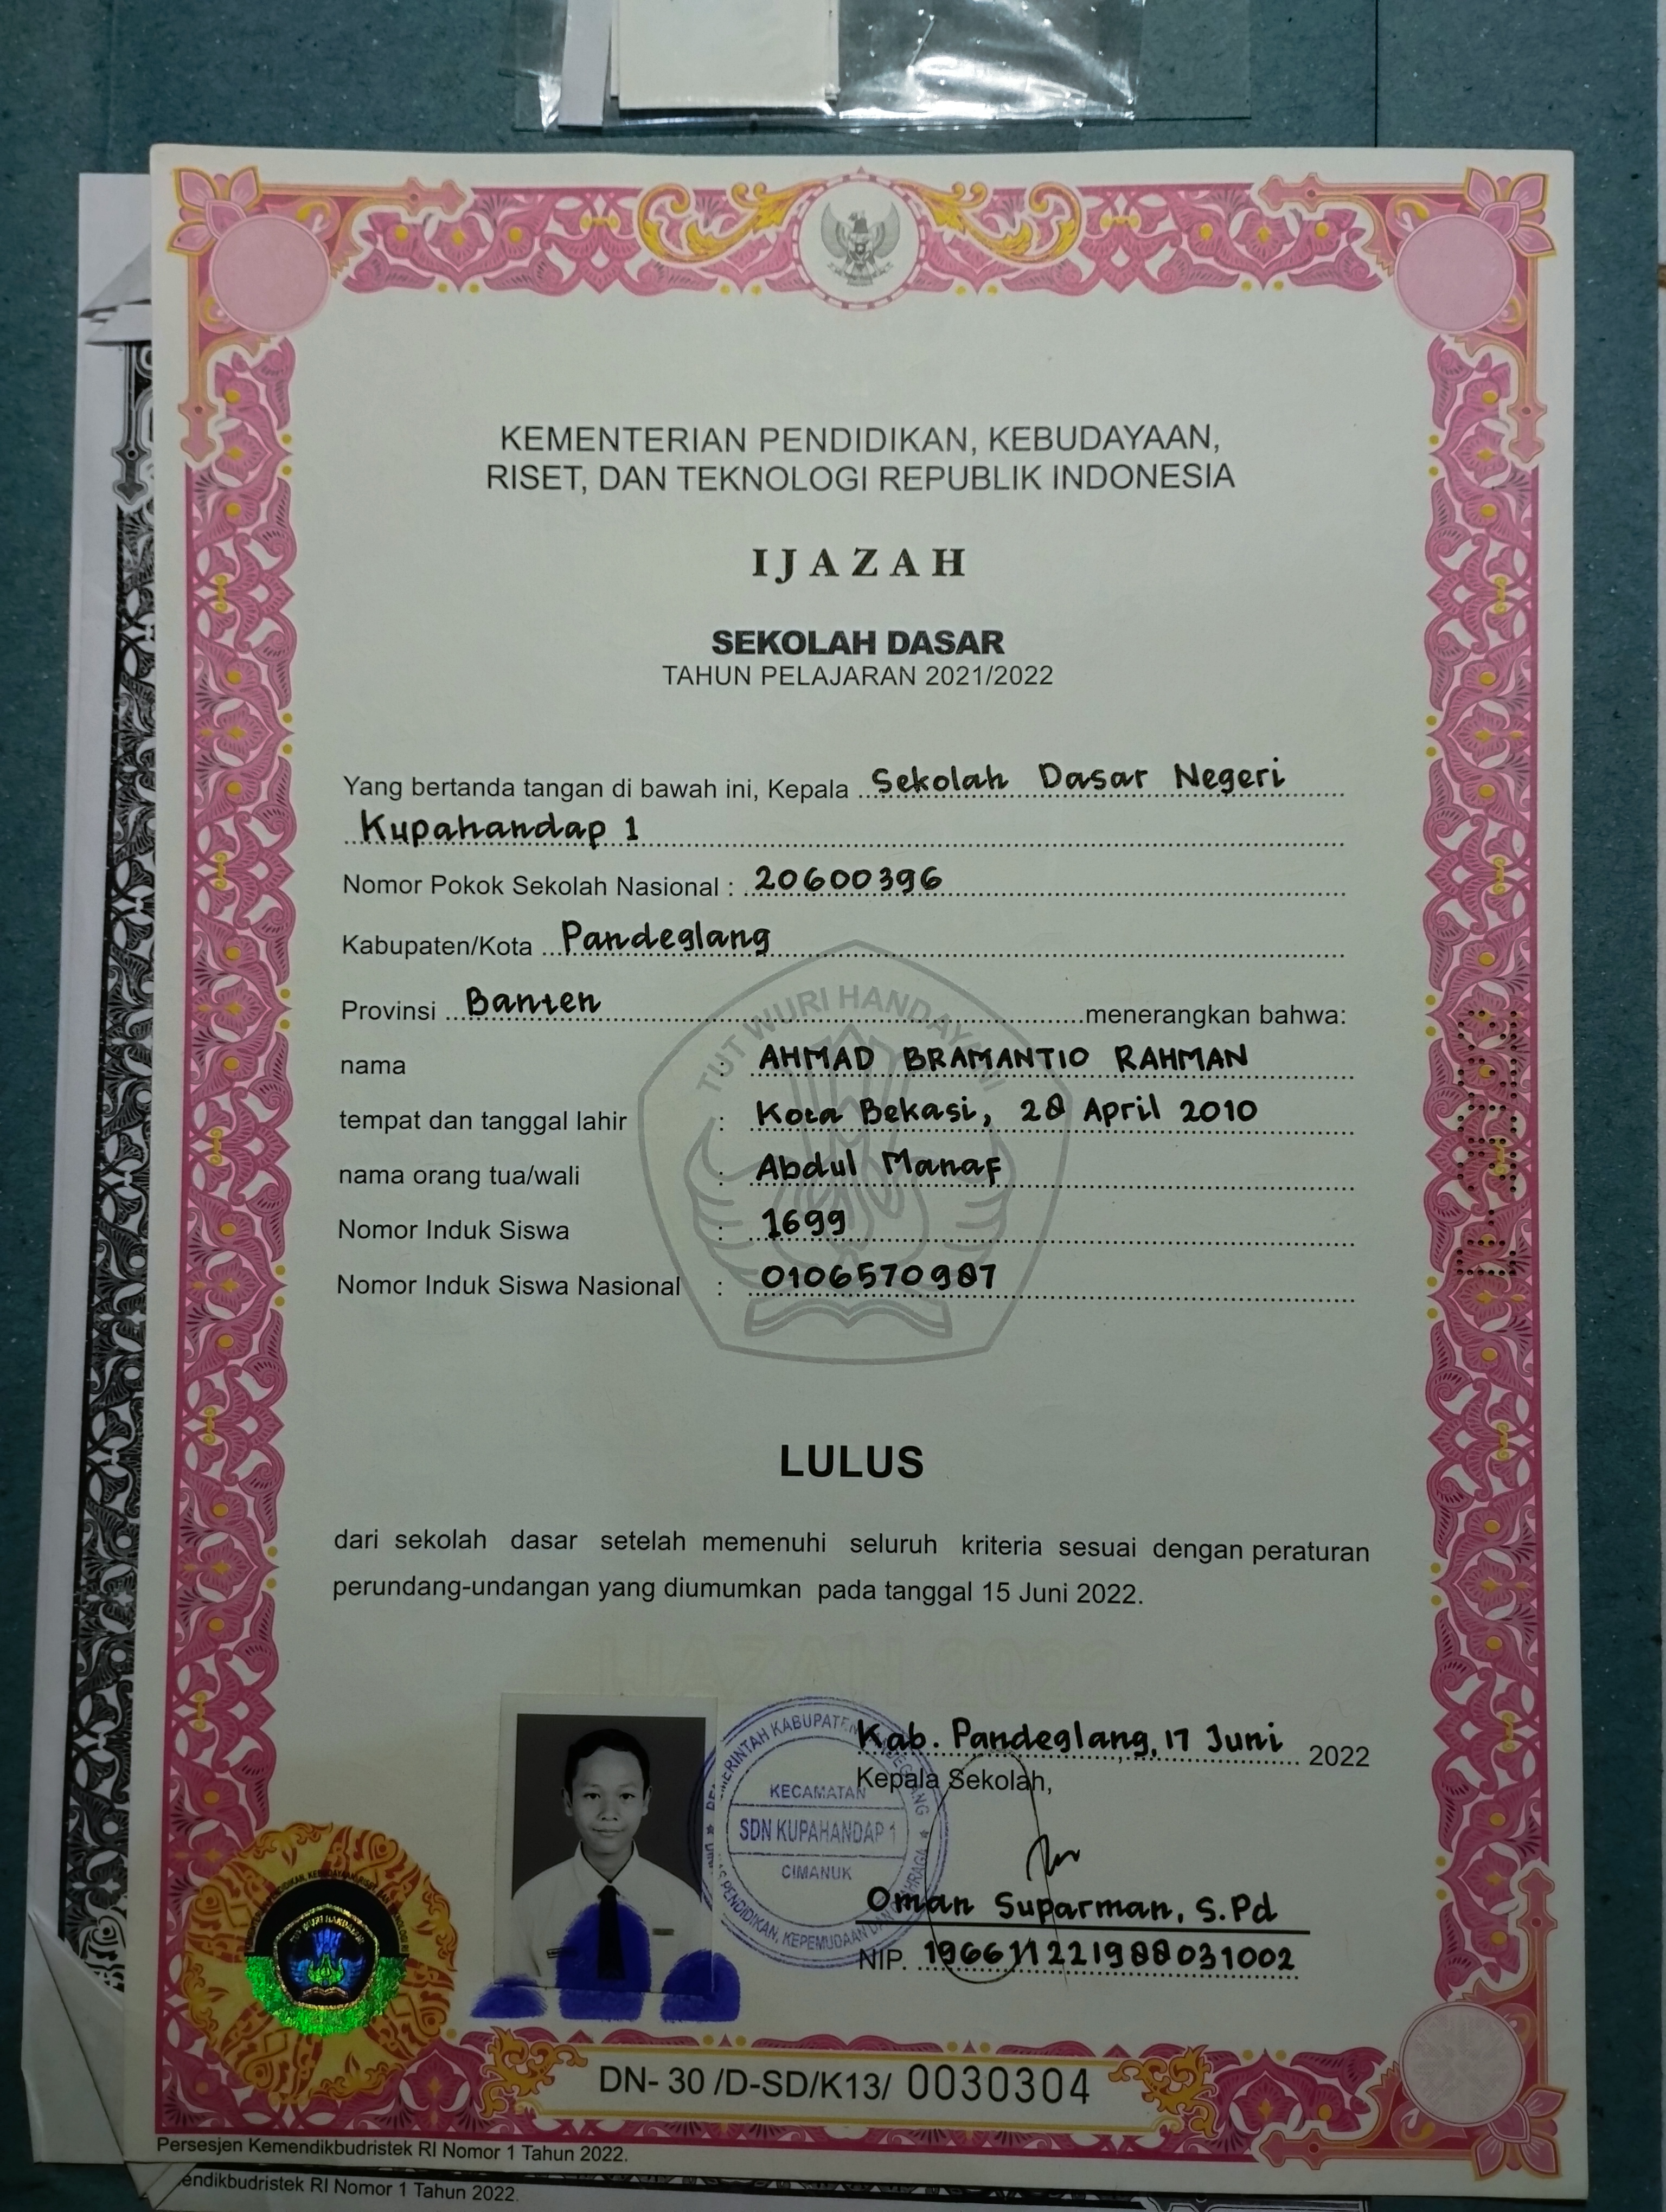 KEMENTERIAN PENDIDIKAN, KEBUDAYAAN,
RISET, DAN TEKNOLOGI REPUBLIK INDONESIA
IJAZAH
SEKOLAH DASAR
TAHUN PELAJARAN 2021/2022
Yang bertanda tangan di bawah ini, Kepala Sekolah Dasar Negeri
Kupahandap 1
Nomor Pokok Sekolah Nasional : 20600396
Kabupaten/Kota Pandeglang
Provinsi Banten menerangkan bahwa:
TUT WURI HANDAYANI
nama : AHMAD BRAMANTIO RAHMAN
tempat dan tanggal lahir : Kota Bekasi, 28 April 2010
nama orang tua/wali : Abdul Manaf
Nomor Induk Siswa : 1699
Nomor Induk Siswa Nasional : 0106570987
LULUS
dari sekolah dasar setelah memenuhi seluruh kriteria sesuai dengan peraturan
perundang-undangan yang diumumkan pada tanggal 15 Juni 2022.
IJAZAH 2022
Kab. Pandeglang, 17 Juni 2022
Kepala Sekolah,
KECAMATAN
SDN KUPAHANDAP 1
CIMANUK
Oman Suparman, S.Pd
NIP. 196611221988031002
DN- 30 /D-SD/K13/ 0030304
Persesjen Kemendikbudristek RI Nomor 1 Tahun 2022.
endikbudristek RI Nomor 1 Tahun 2022.